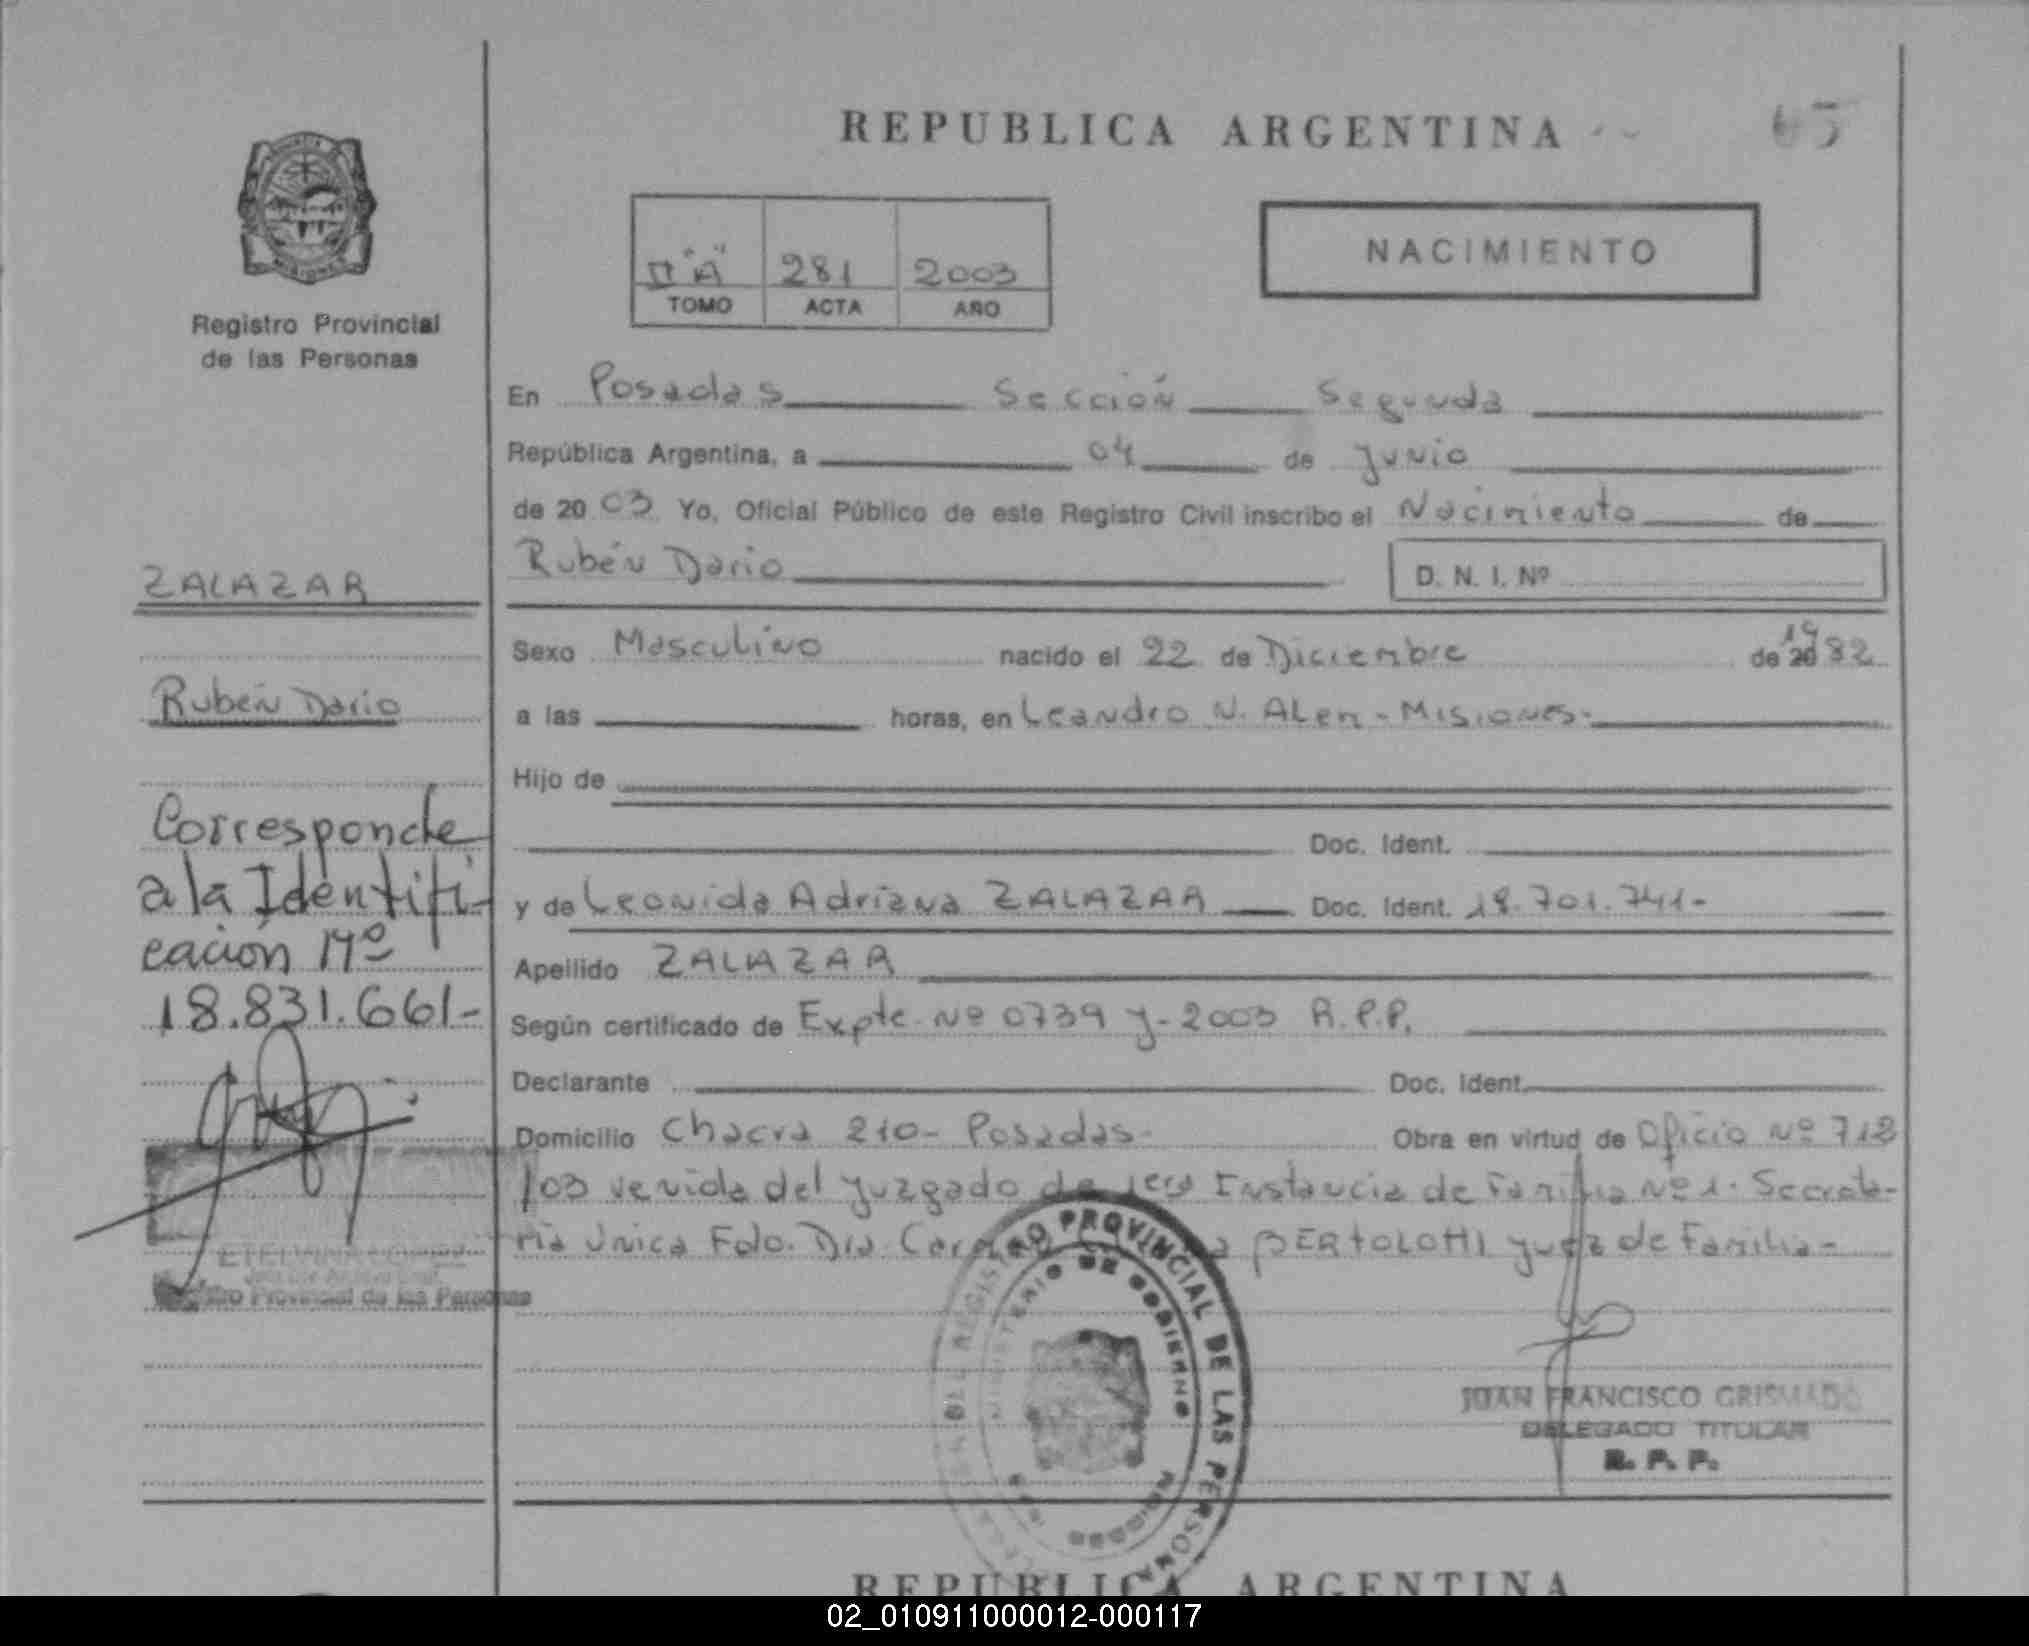 REPUBLICA ARGENTINA
65
MISIONES
Registro Provincial
de las Personas
II "A" 281 2003
TOMO ACTA AÑO
NACIMIENTO
En Posadas Sección Segunda
República Argentina, a 04 de Junio
de 20 03 Yo, Oficial Público de este Registro Civil inscribo el Nacimiento de
Rubén Dario D. N. I. Nº
ZALAZAR
Rubén Dario
Sexo Masculino nacido el 22 de Diciembre de 20 19 82
a las horas, en Leandro N. Alem - Misiones-
Hijo de
Doc. Ident.
y de Leonida Adriana ZALAZAR Doc. Ident. 18.701.741-
Apellido ZALAZAR
Según certificado de Expte. Nº 0739 y-2003 R.P.P.
Declarante Doc. Ident.
Domicilio Chacra 210- Posadas- Obra en virtud de Oficio Nº 718
/03 venida del Juzgado de 1era Instancia de Familia Nº 1. Secreta-
ria Unica Fdo. Dra. BERTOLOTTI Juez de Familia-
Corresponde
a la Identifi-
cación Nº
18.831.661-
ETELVINA LOPEZ
Registro Provincial de las Personas
REGISTRO PROVINCIAL DE LAS PERSONAS
MINISTERIO DE GOBIERNO
JUAN FRANCISCO GRISMADO
DELEGADO TITULAR
R. P. P.
REPUBLICA ARGENTINA
02_010911000012-000117